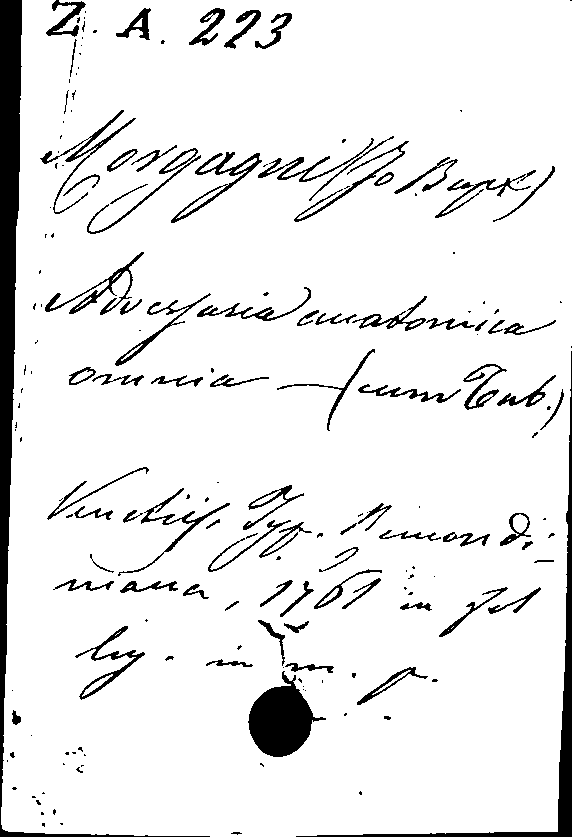 Z. A. 223
Morgagni (Jo Bapt)
Adversaria anatomica
omnia — (cum Tab.)
Venetiis, Typ. Remondi-
niana, 1761 in fol
leg. in m. p.